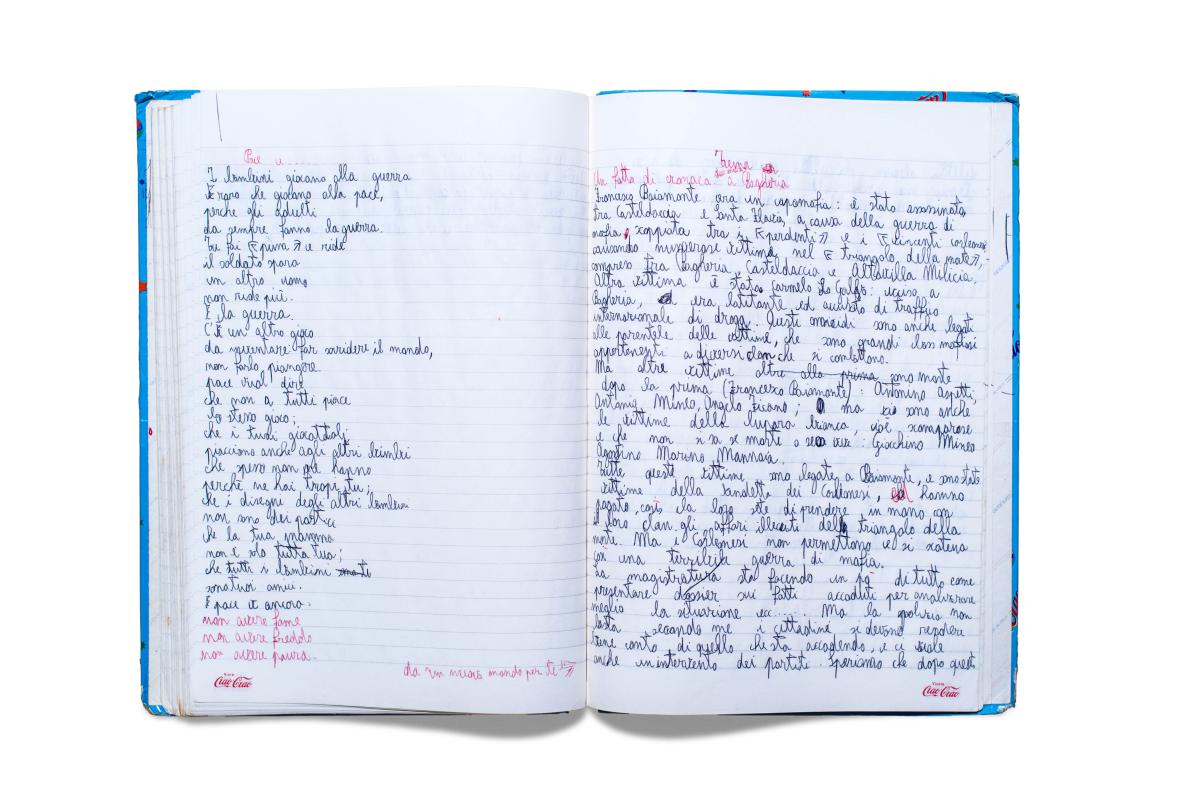 Pace è ......
I bambini giocano alla guerra
È raro che giocano alla pace,
perche gli adulti
da sempre fanno la guerra.
Tu fai «pum» e ridi
il soldato spara
un altro uomo
non ride più.
È la guerra.
C'è un altro gioco
da inventare: far sorridere il mondo,
non farlo piangere.
pace vuol dire
che non a tutti piace
lo stesso gioco;
che i tuoi giocattoli
piacciono anche agli altri bimbi
che spesso non ne hanno
perchè ne hai troppi tu;
che i disegni degli altri bambini
non sono dei pasticci
che la tua mamma
non è solo tutta tua;
che tutti i bambini
sono tuoi amici.
E pace è ancora:
non avere fame
non avere freddo
non avere paura.
da «un nuovo mondo per te»
Tema
Un fatto di cronaca a Bagheria
Francesco Baiamonte era un capomafia: è stato assassinato,
tra Casteldaccia e Santa Flavia, a causa della guerra di
mafia, scoppiata tra i «perdenti» e i «vincenti corleonesi
causando numerose vittime, nel «triangolo della morte»,
compreso tra Bagheria, Casteldaccia e Altavilla Milicia.
Altra vittima è stato Carmelo Lo Galbo: ucciso a
Bagheria, era latitante ed accusato di traffico
internazionale di droga. Questi omicidi sono anche legati
alle parentele delle vittime, che sono grandi boss mafiosi
appartenenti a diversi clan che si combattono.
Ma altre vittime oltre alla prima sono morte
dopo la prima (Francesco Baiamonte): Antonino
Antonio Mineo, Angelo ; ma vi sono anche
le vittime della lupara bianca, cioè scomparse
e che non si sa se morte o vive: Giacchino Mineo
Agostino Marino Mannoia.
Tutte queste vittime sono legate a Baiamonte, e sono state
vittime della vendetta dei Corleonesi, hanno
pagato così la loro sete di prendere in mano con
il loro clan gli affari illeciti del triangolo della
morte. Ma i Corleonesi non permettono e si scatena
così una terribile guerra di mafia.
La magistratura sta facendo un pò di tutto come
presentare dossier sui fatti accaduti per analizzare
meglio la situazione ecc..... Ma la polizia non
basta secondo me i cittadini si devono
tene conto di quello che sta accadendo, e ci vuole
anche un intervento dei partiti. Speriamo che dopo questi
Vivere
Ciao Ciao
Vivere
Ciao Ciao